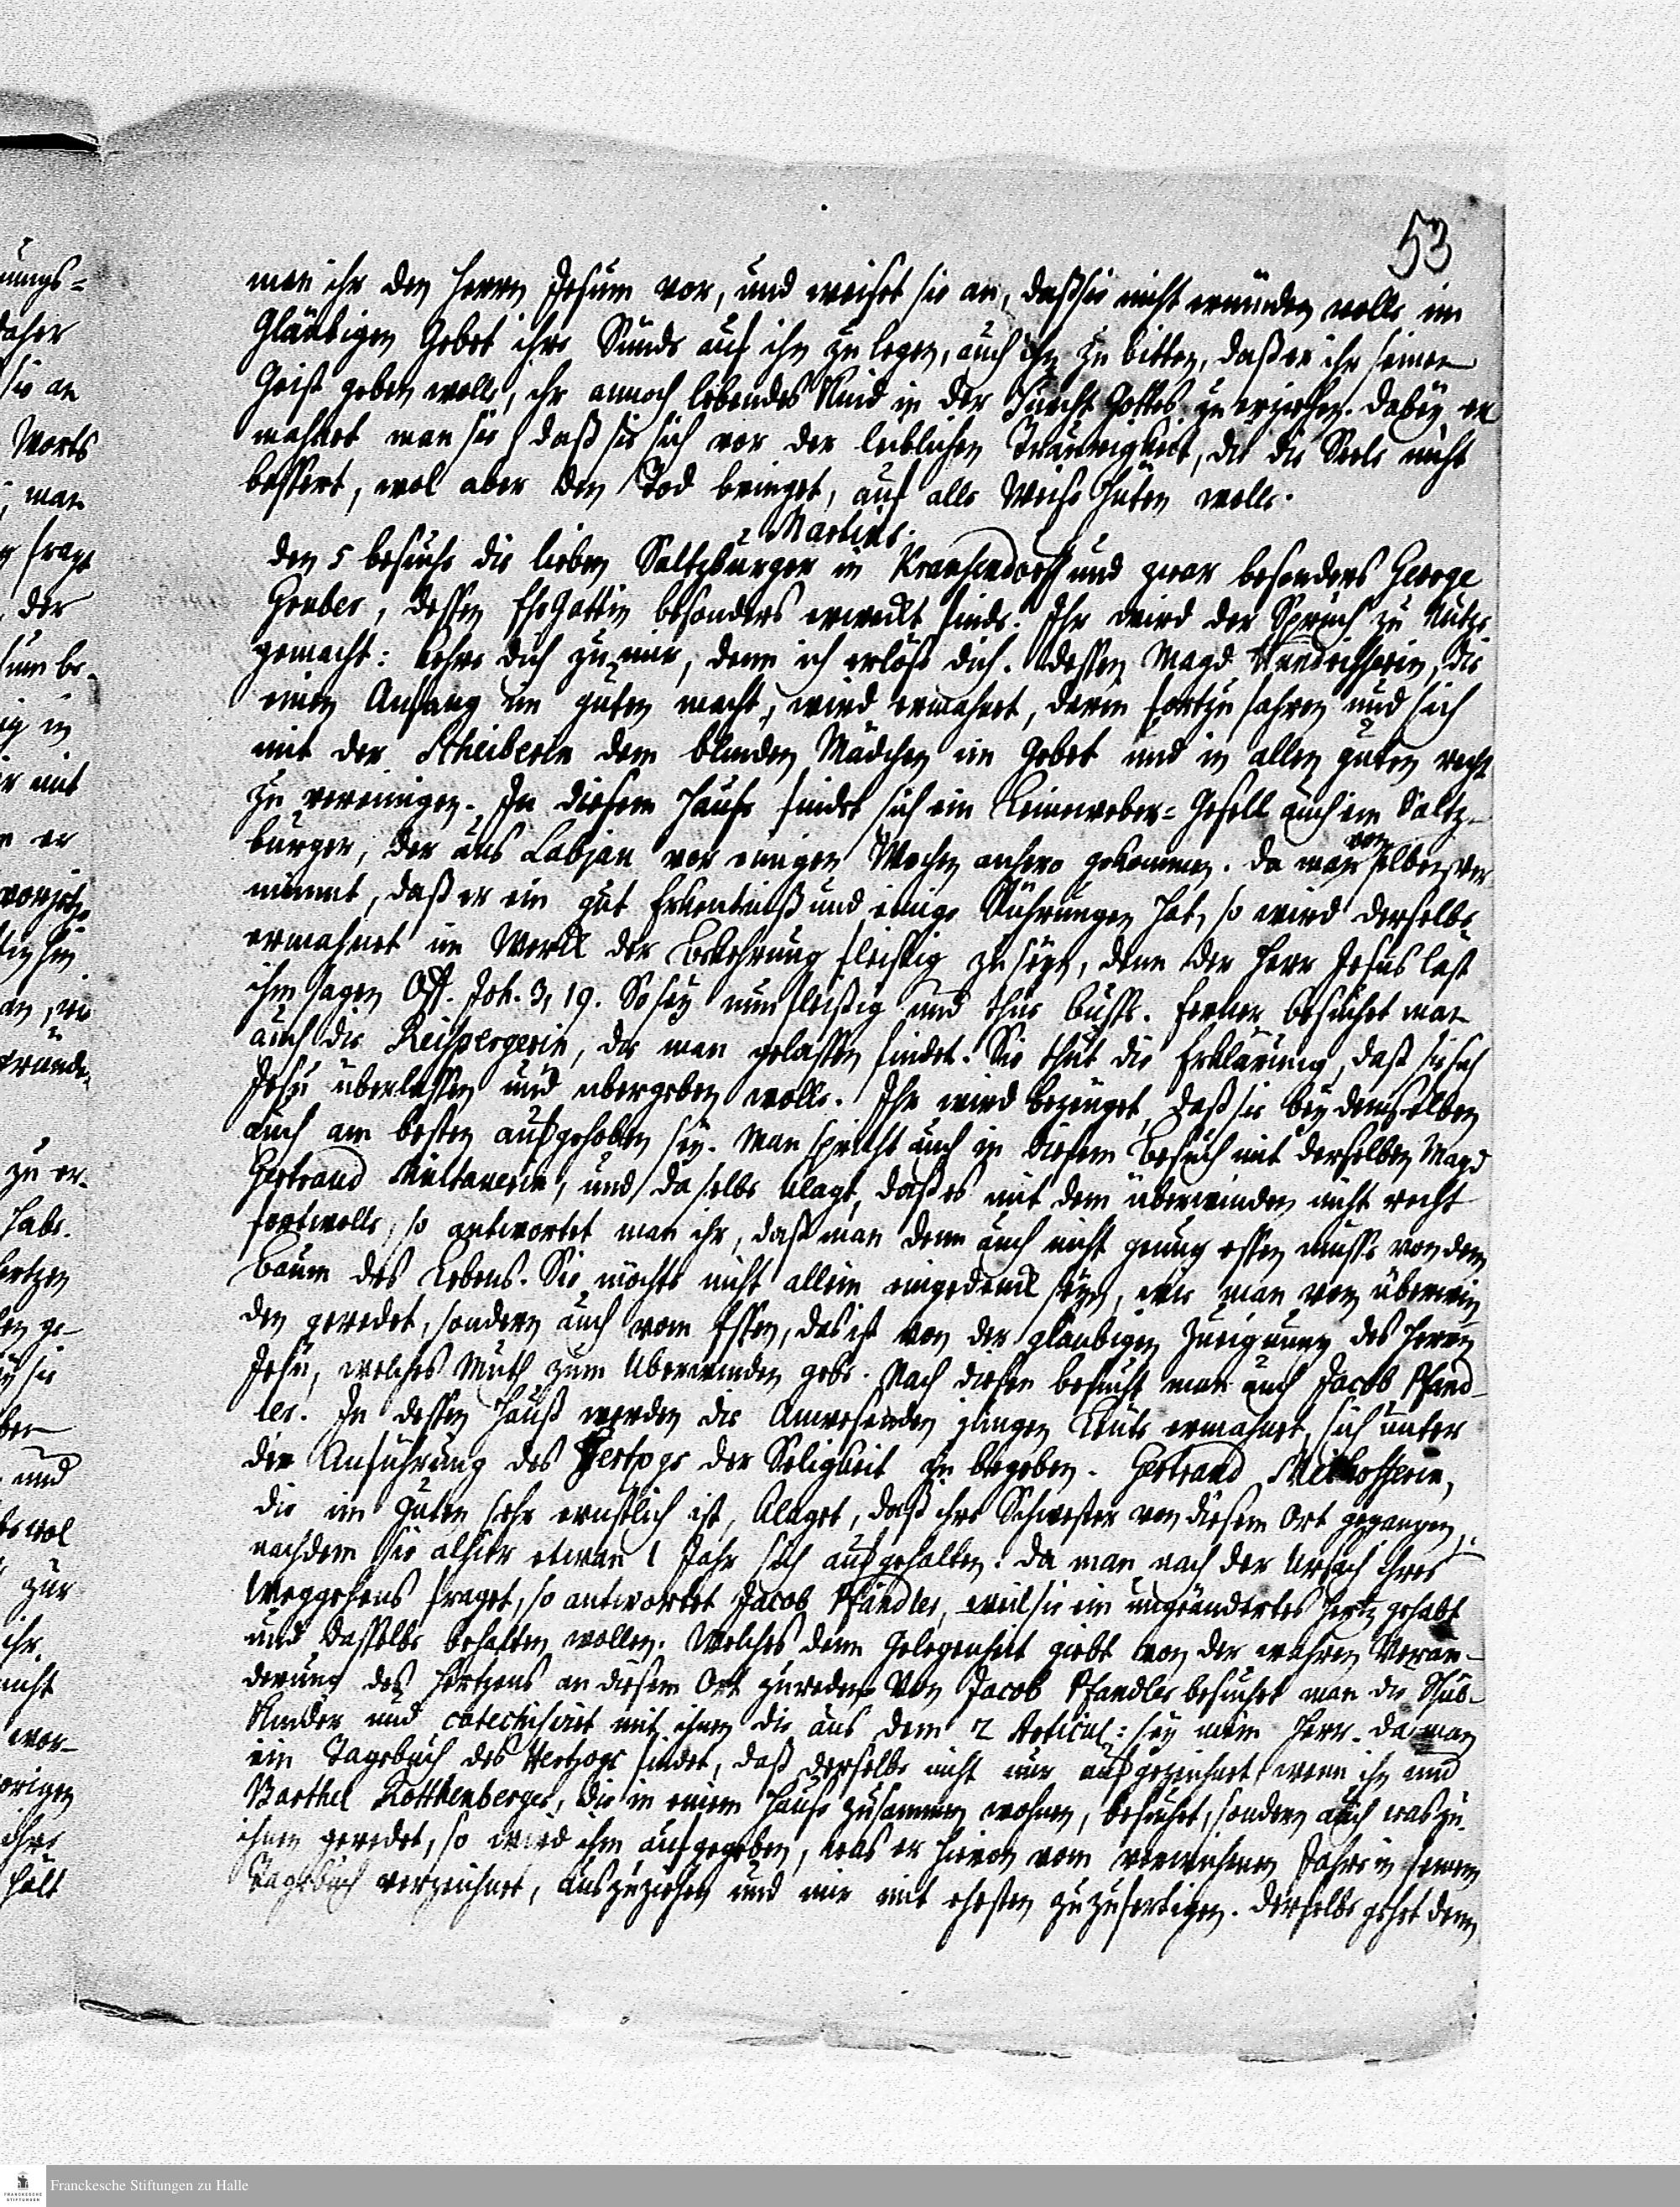 53
man ihr den Herrn Jesum vor, und weiset sie an, daß sie nicht ermüden wolle im
Gläubigen Gebet ihre Sünde auf ihn zu legen, auch ihn zu bitten, daß er ihr seinen
Geist geben wolle, ihr annoch lebendes Kind in der Furcht Gottes zu erziehen. Dabey er
mahnet man sie daß sie sich vor der leiblichen Traurigkeit, die die Seele nicht
bessert, wol aber den Tod bringet, auf alle Weise hüten wolle.
Martius.
den 5 besuche die lieben Saltzburger in und zwar besonders George
Gruber, dessen EheGattin besonders erweckt finde. Ihr wird der Spruch zu Nutze
gemacht: Kehre dich zu mir, denn ich erlöse dich. dessen Magd die
einen Anfang im guten macht, wird ermahnet, darin fortzufahren und sich
mit der Scheiberin dem blinden Mädchen im Gebet und in allen guten recht
zu vereinigen. In diesem Hause findet sich ein Leinweber-Gesell auch ein Saltz-
burger, der aus Labjau vor einigen Wochen anhero gekommen. Da man von selben ver
nimmt, daß er ein gut Erkentniß und einige Rührungen hat, so wird derselbe
ermahnet im Werck der Bekehrung fleißig zu seyn, denn der Herr Jesus läst
ihm sagen Off. Joh. 3, 19. So sey nun fleißig und thue buße. Ferner besuchet man
auch die Reispergerin, die man gelassen findet. Sie thut die Erklärung, daß sie sich
Jesu überlassen und übergeben wolle. Ihr wird bezeuget, daß sie bey demselben
auch am besten aufgehoben sey. Man spricht auch in diesem Besuch mit derselben Magd
Gertraud und da selbe klagt, daß es mit dem überwinden nicht recht
fort wolle, so antwortet man ihr, daß man denn auch nicht genug essen müsse von dem
Baum des Lebens. Sie möchte nicht allein eingedenck seyn, wie man vom überwin
den geredet, sondern auch vom Essen, das ist von der gläubigen Zueignung des Herrn
Jesu, welches Muth zum Überwinden gebe. Nach diesen besucht man auch Jacob Pfänd-
ler. In dessen Hauß werden die Anwesenden jungen Leute ermahnet, sich unter
die Anführung des Hertzogs der Seligkeit zu begeben. Gertraud
die im Guten sehr ernstlich ist, klaget, daß ihre Schwester von diesem Ort gegangen,
nachdem sie alhier etwan 1 Jahr sich aufgehalten. Da man nach der Ursach ihres
Weggehens fraget, so antwortet Jacob Pfändler, weil sie ein ungeändertes Hertz gehabt
und dasselbe behalten wollen. Welches denn Gelegenheit giebt von der wahren Verän-
derung des Hertzens an diesem Ort zu reden. Von Jacob Pfändler besuchet man die Schul-
Kinder und catechisirt mit ihnen die aus dem 2 Articul: sey mein Herr. Da man
ein Tagebuch des Hertzogs findet, daß derselbe nicht nur aufgezeichnet wenn ihn und
Barthel Rottenberger, die in einem Hause zusammen wohnen, besuchet, sondern auch was zu
ihnen geredet, so wird ihm aufgegeben, was er hievon vom verwichenen Jahre in seinem
Tagebuch verzeichnet, auszuziehen und mir mit ehesten zuzufertigen. Derselbe gehet denn
Franckesche Stiftungen zu Halle